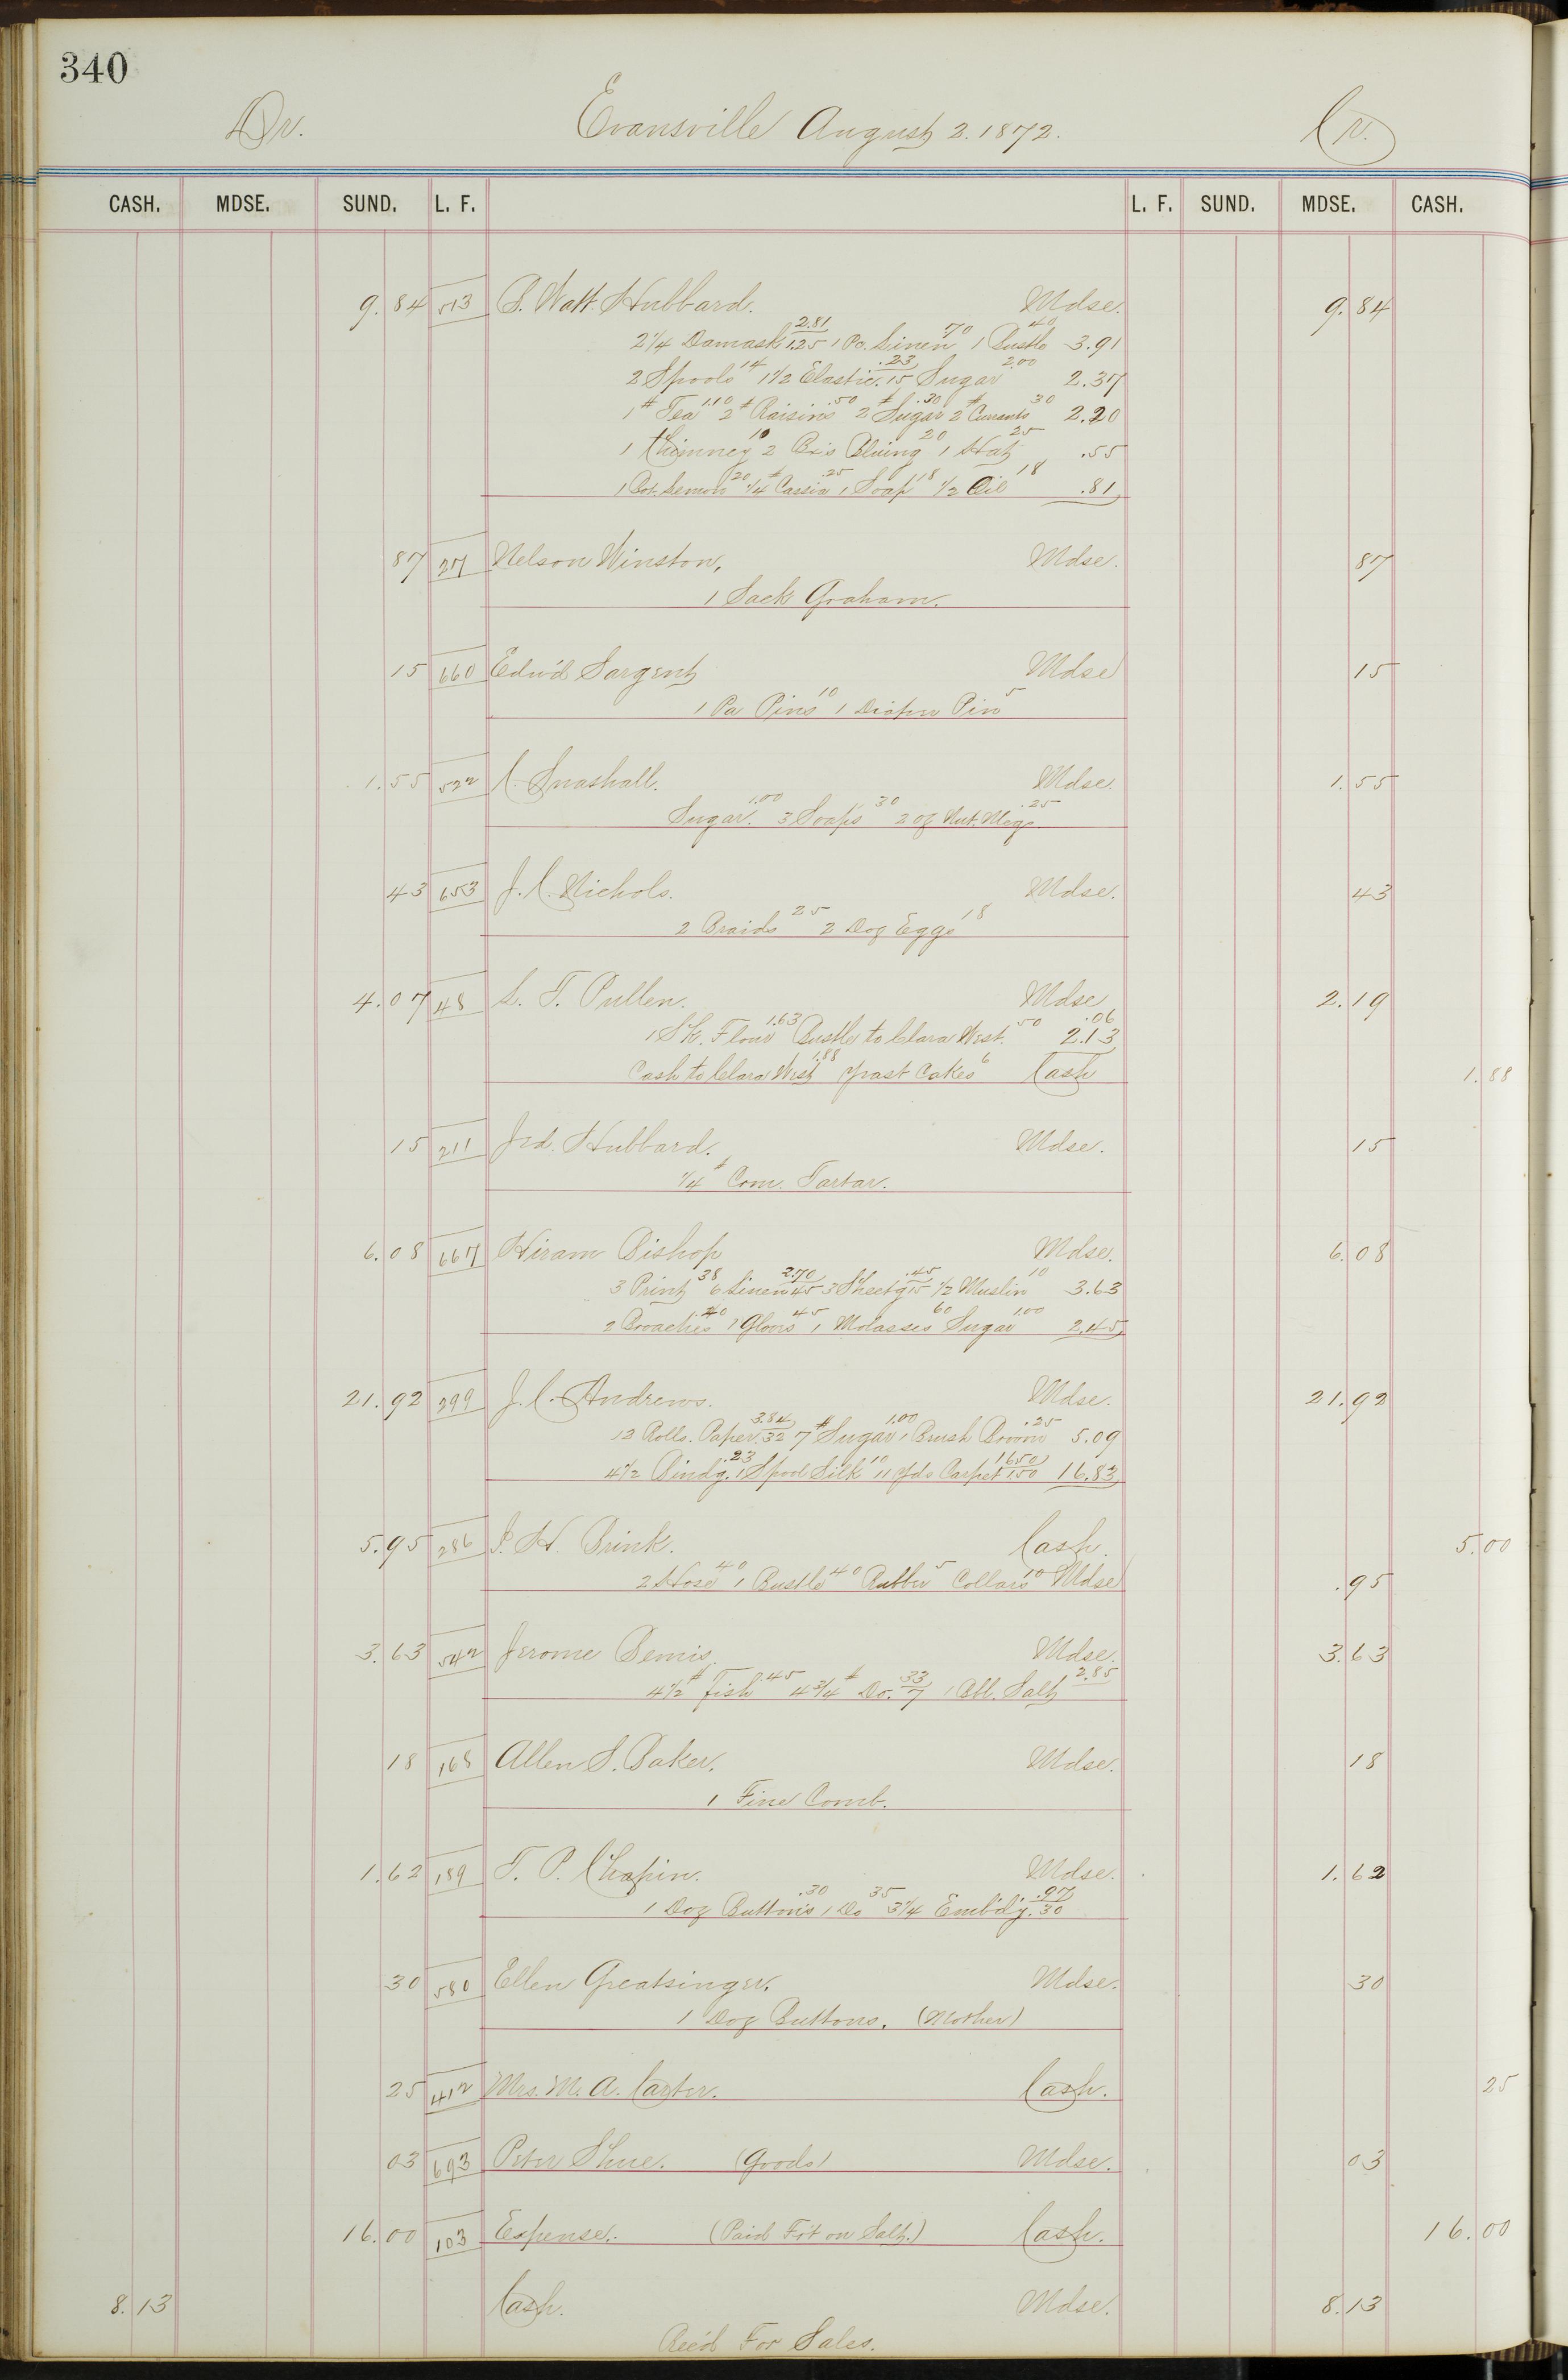 340
Dr. Evansville August 2. 1872. Cr.
CASH. MDSE. SUND. L. F. L. F. SUND. MDSE. CASH.
9.84 513 S. Watt. Hubbard. Mdse. 9.84
2 1/4 Damask 2.81/1.25 1 Pa. Linen 70 1 Bustle 40 3.91
2 Spools 14 1 1/2 Elastic .23/.15 Sugar 2.00 2.37
1# Tea 1.10 2# Raisins .50 2# Sugar .30 2# Currants 30 2.20
1 Chimney 10 2 Bxs Bluing 20 1 Hat 25 .55
1 Bot. Lemon 20 1/4# Cassia .25 1 Soap 18 1/2 Oil 18 .81
87 27 Nelson Winston, Mdse. 87
1 Sack Graham.
15 660 Edw'd Sargent Mdse 15
1 Pa Pins 10 1 Diaper Pin 5
1.55 522 C. Snashall. Mdse. 1.55
Sugar. 1.00 3 Soaps 30 2 oz Nut. Megs .25
43 653 J. C. Nichols. Mdse. 43
2 Braids 25 2 Doz Eggs 18
4.07 48 L. T. Pullen. Mdse 2.19
1 Sk. Flour 1.63 Bustle to Clara West. 50 .06 2.13
Cash to Clara West 1.88 Yeast Cakes 6 Cash 1.88
15 211 Jed. Hubbard. Mdse. 15
1/4# Com. Tartar.
6.08 667 Hiram Bishop Mdse. 6.08
3 Print 38 6 Linen 2.70/45 3 Sheetg .45/15 1/2 Muslin 10 3.63
2 Broaches .40 1 Gloves 45 1 Molasses 60 Sugar 1.00 2.45
21.92 299 J. C. Andrews. Mdse. 21.92
12 Rolls. Paper. 3.84/32 7# Sugar 1.00 1 Brush Broom .25 5.09
4 1/2 Bindg. .23 1 Spool Silk 10 11 Yds Carpet 16.50/1.50 16.83
5.95 286 J. H. Brink. Cash. 5.00
2 Hose 40 1 Bustle 40 Rubber 5 Collars 10 Mdse .95
3.63 542 Jerome Bemis. Mdse. 3.63
4 1/2# Fish .45 4 3/4# Do. 33/7 1 Bbl. Salt 2.85
18 168 Allen S. Baker. Mdse. 18
1 Fine Comb.
1.62 189 T. P. Chapin. Mdse. 1.62
1 Doz Buttons .30 1 Do 35 3 1/4 Emb'd'g. .97/.30
30 580 Ellen Greatsinger. Mdse. 30
1 Doz Buttons. (Mother)
25 412 Mrs. M. A. Carter. Cash. 25
03 693 Peter Shue. (Goods) Mdse. 03
16.00 103 Expense. (Paid F't on Salt.) Cash. 16.00
8.13 Cash. Mdse. 8.13
Rec'd For Sales.